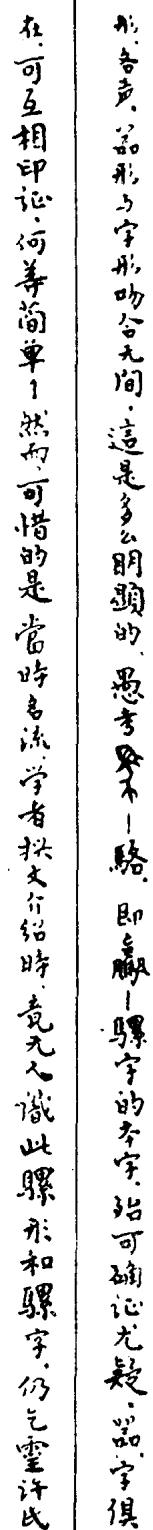 形、各声。器形与字形吻合无间。這是多么明顯的、愚考—駱。即驘—騾字的本字。殆可确证无疑。器、字俱
在、可互相印证。何等简单！然而、可惜的是當時名流、学者撰文介绍时、竟无人識此騾形和騾字。仍乞靈许氏